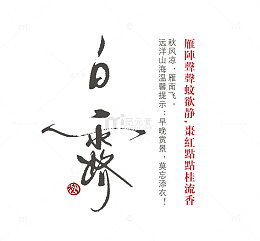 雁陣聲聲蚊欲静,棗紅點點桂流香
秋风凉、雁南飞。
远洋山海温馨提示：早晚赏景，莫忘添衣！
白露